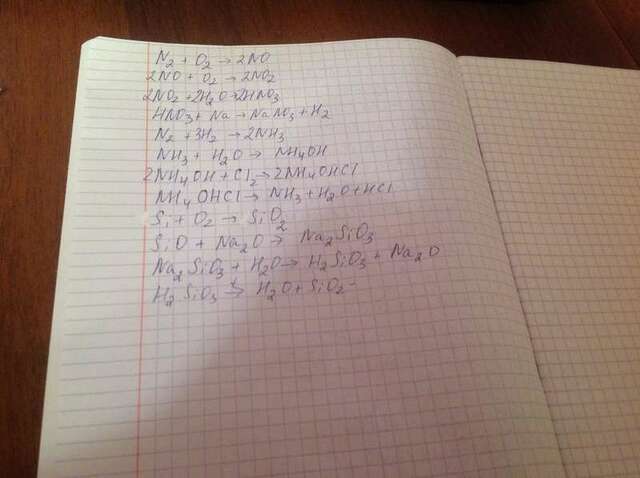 N₂ + O₂ → 2NO
2NO + O₂ → 2NO₂
2NO₂ + 2H₂O → 2HNO₃
HNO₃ + Na → NaNO₃ + H₂
N₂ + 3H₂ → 2NH₃
NH₃ + H₂O → NH₄OH
2NH₄OH + Cl₂ → 2NH₄OHCl
NH₄OHCl → NH₃ + H₂O + HCl
Si + O₂ → SiO₂
SiO₂ + Na₂O → Na₂SiO₃
Na₂SiO₃ + H₂O → H₂SiO₃ + Na₂O
H₂SiO₃ →ᵗ H₂O + SiO₂